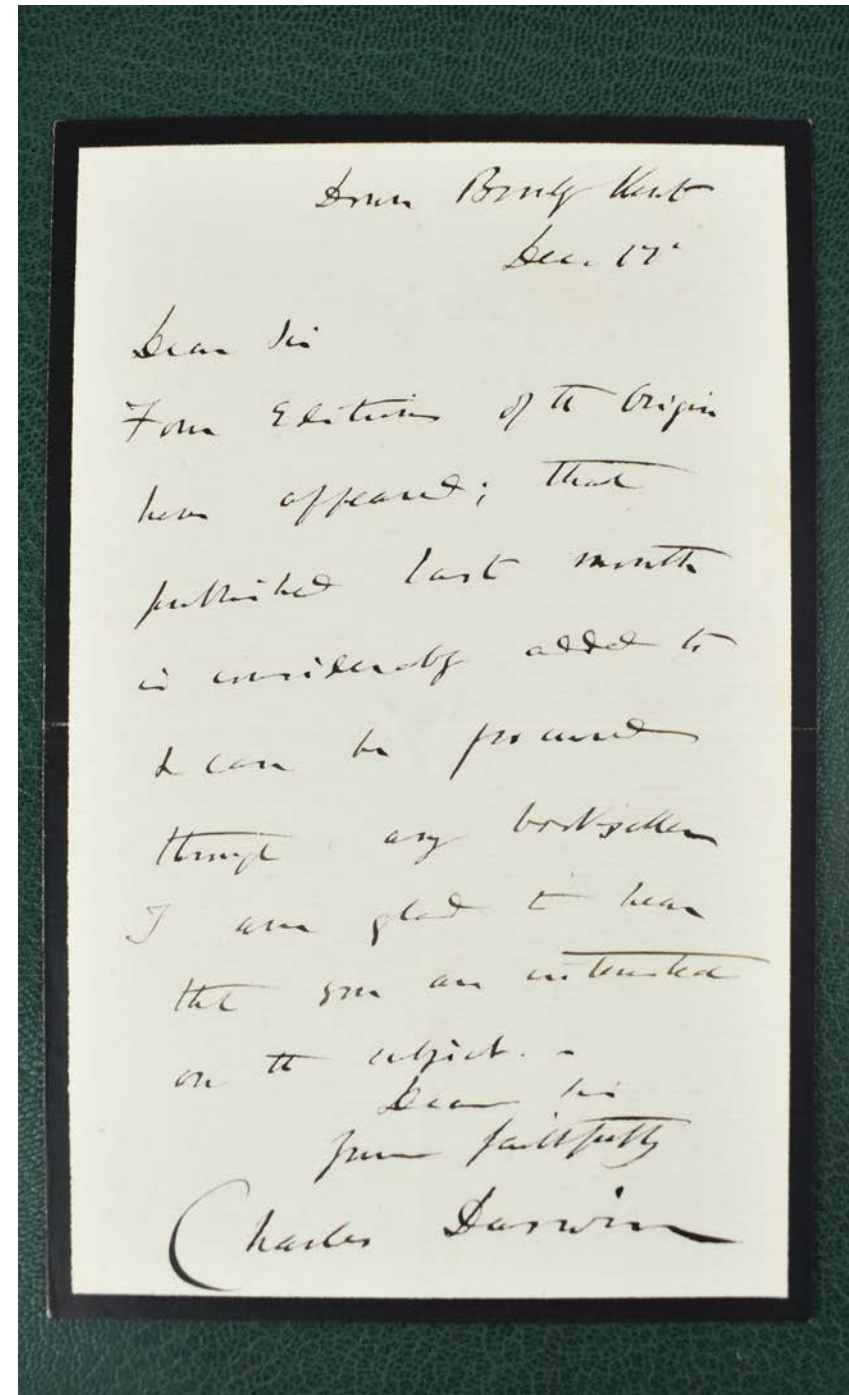 Down Bromley Kent
Dec. 17
Dear Sir
Four Editions of the Origin
have appeared; that
published last month
is considerably added to
& can be procured
through any bookseller
I am glad to hear
that you are interested
on the subject. –
Dear Sir
yours faithfully
Charles Darwin